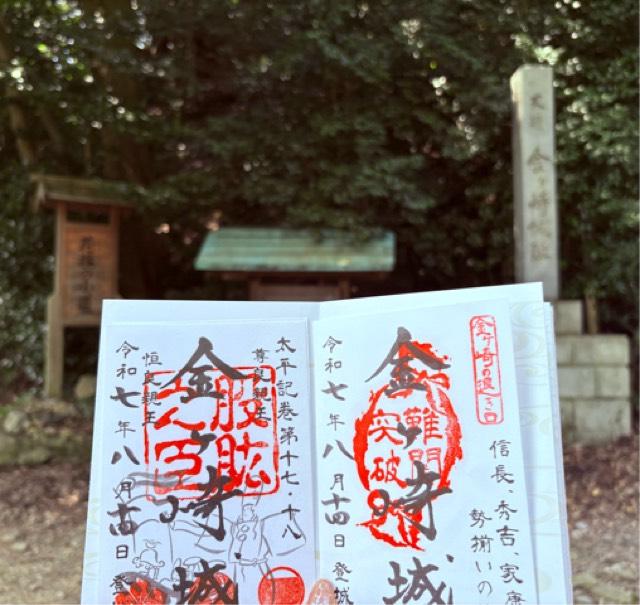 金ヶ崎の退き口
信長、秀吉、家康
勢揃いの
金ヶ崎城
難関
突破
令和七年八月十四日登城
太平記巻第十七・十八
尊良親王
金ヶ崎城
股肱
恒良親王
令和七年八月十四日登